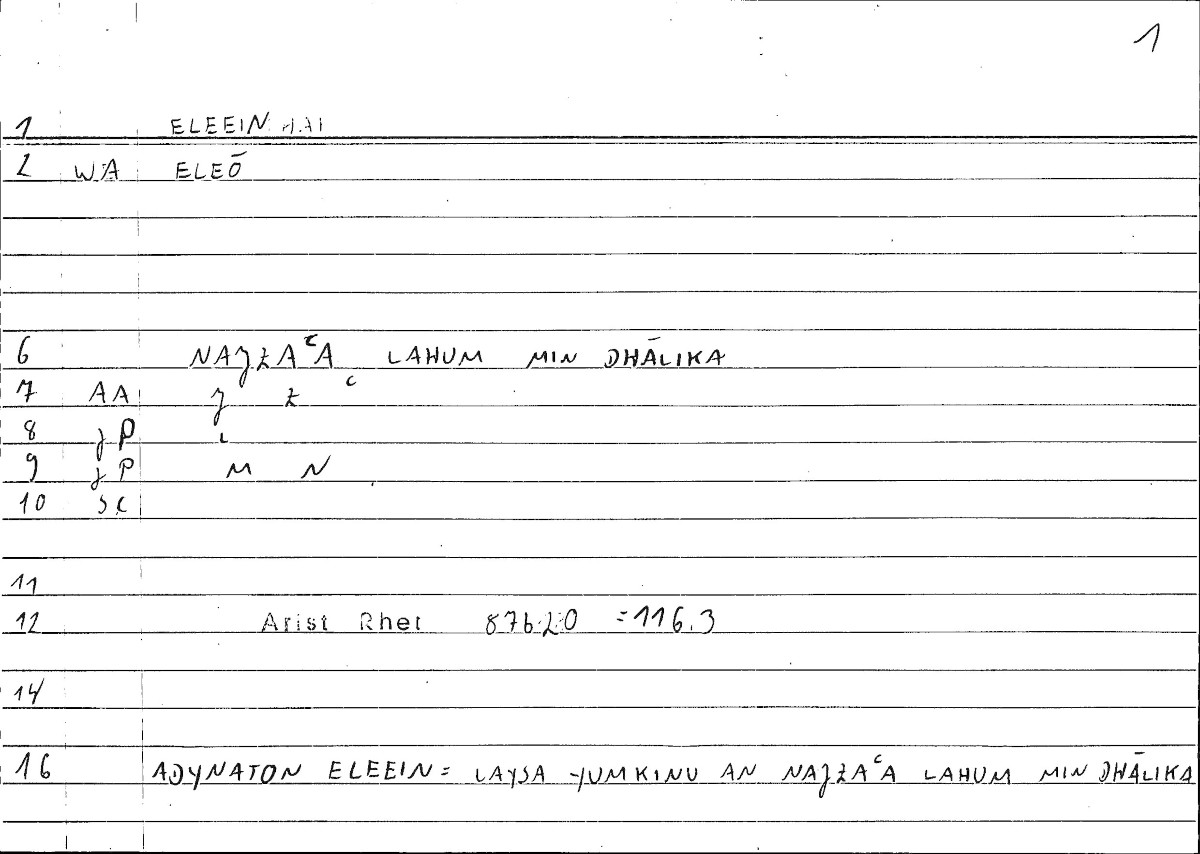 1
1 ELEEIN
2 WA ELEŌ
6 NAJZAᶜA LAHUM MIN DHĀLIKA
7 AA J Z ᶜ
8 JP L
9 JP M N
10 SC
11
12 Arist Rhet 87b20 =116.3
14
16 ADYNATON ELEEIN = LAYSA YUMKINU AN NAJZAᶜA LAHUM MIN DHĀLIKA